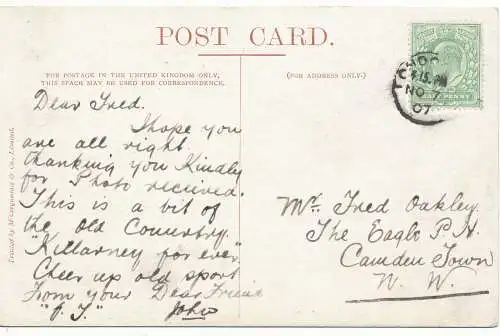 POST CARD.
FOR POSTAGE IN THE UNITED KINGDOM ONLY,
THIS SPACE MAY BE USED FOR CORRESPONDENCE.
(FOR ADDRESS ONLY.)
Dear Fred.
I hope you
are all right.
thanking you Kindly
for Photo recieved.
This is a bit of
the old Country.
"Killarney for ever"
Cheer up old sport
From your Dear Friend
John
Mr. Fred Oakley.
The Eagle P.H.
Camden Town
N. W.
NO 7
07
PENNY